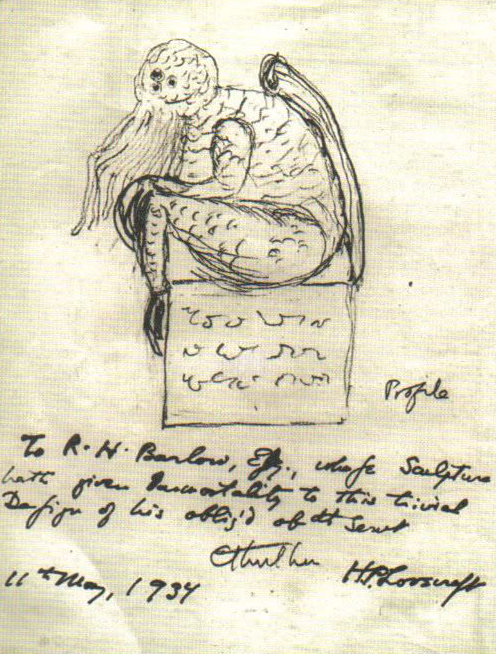 Profile
To R. H. Barlow, Eſq., whoſe Sculpture
hath given Immortality to this trivial
Deſign of his oblig'd obᵗ Servᵗ
Cthulhu
H.P. Lovecraft
11th May, 1934